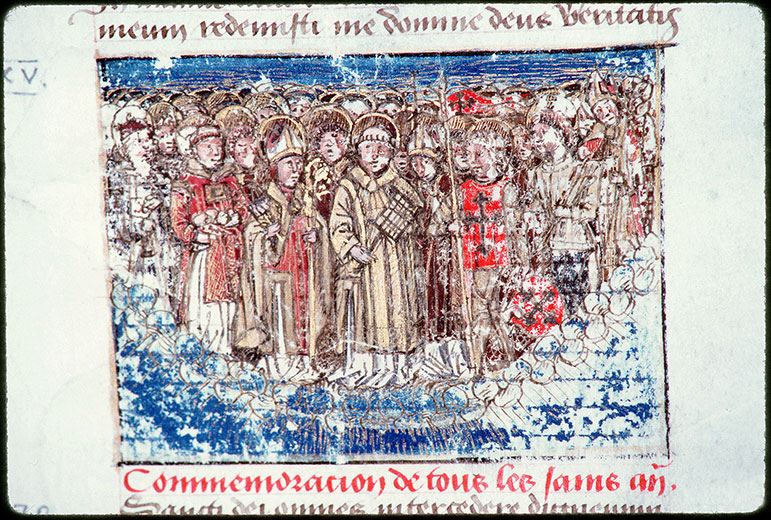 meum redemisti me domine deus veritatis
XV.
Commemoracion de tous les sains añ.
Sancti dei omnes intercedere dignemini